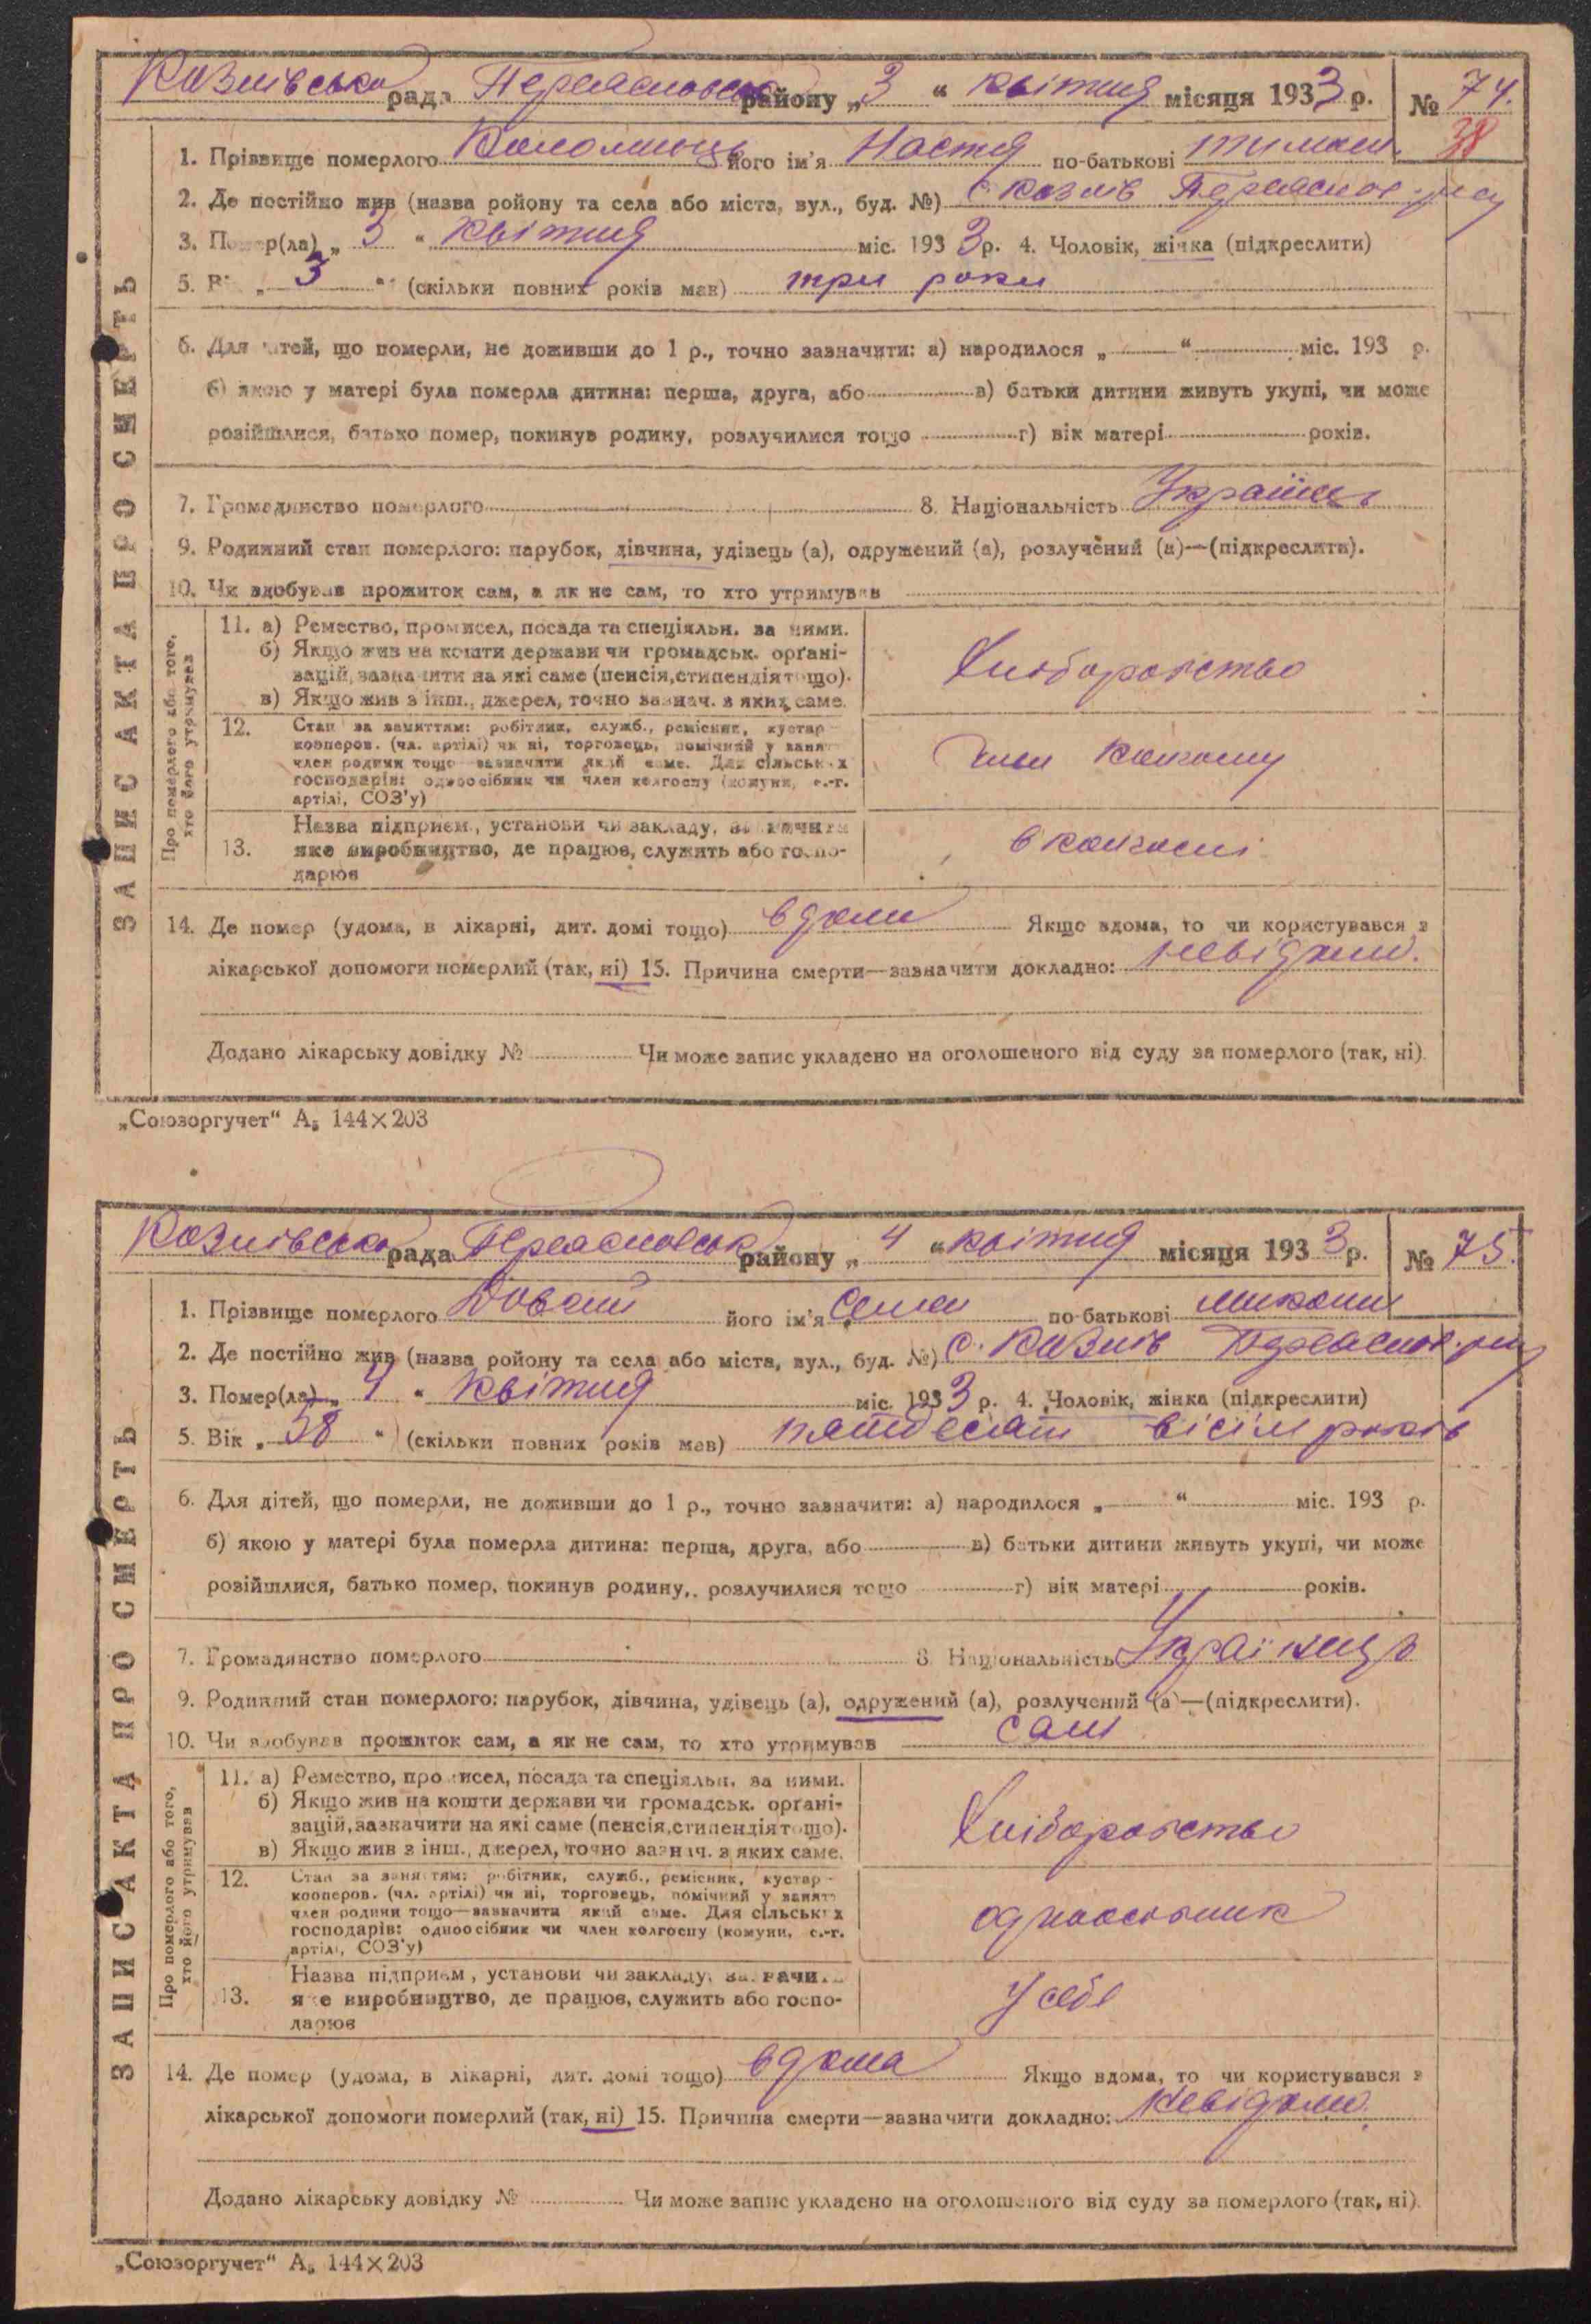 Козлівська рада Переяславськ району „3“ квітня місяця 1933 р. № 74.
38
1. Прізвище померлого Коломиець його ім'я Настя по-батькові Тимош.
2. Де постійно жив (назва ройону та села або міста, вул., буд. №) с. Козлів Переяслов. р-ну
3. Помер(ла) „3“ квітня міс. 1933 р. 4. Чоловік, жінка (підкреслити)
5. Вік „3“ (скільки повних років мав) три роки
6. Для дітей, що померли, не доживши до 1 р., точно зазначити: а) народилося „ “ міс. 193 р.
б) якою у матері була померла дитина: перша, друга, або в) батьки дитини живуть укупі, чи може
розійшлися, батько помер, покинув родину, розлучилися тощо г) вік матері років.
7. Громадянство померлого 8. Національність Українец
9. Родинний стан померлого: парубок, дівчина, удівець (а), одружений (а), розлучений (а)—(підкреслити).
10. Чи здобував прожиток сам, а як не сам, то хто утримував
ЗАПИС АКТА ПРО СМЕРТЬ
Про померлого або того, хто його утримував
11. а) Ремество, промисел, посада та спеціяльн. за ними.
б) Якщо жив на кошти держави чи громадськ. орґані-
зацій, зазначити на які саме (пенсія, стипендія тощо).
в) Якщо жив з інш., джерел, точно зазнач. з яких саме.
Хліборобство
12. Стан за заняттям: робітник, служб., ремісник, кустар-
кооперов. (чл. артілі) чи ні, торговець, помічний у занят.
член родини тощо—зазначити який саме. Для сільських
господарів: одноосібник чи член колгоспу (комуни, с.-г.
артілі, СОЗ'у)
член колгоспу
13. Назва підприєм., установи чи закладу, зазначити
яке виробництво, де працює, служить або госпо-
дарює
в колгоспі
14. Де помер (удома, в лікарні, дит. домі тощо) вдома Якщо вдома, то чи користувався з
лікарської допомоги померлий (так, ні) 15. Причина смерти—зазначити докладно: невідомо.
Додано лікарську довідку № Чи може запис укладено на оголошеного від суду за померлого (так, ні).
„Союзоргучет“ А₅ 144×203
Козлівська рада Переясловськ району „4“ квітня місяця 1933 р. № 75.
1. Прізвище померлого Довгий його ім'я Семен по-батькові
2. Де постійно жив (назва ройону та села або міста, вул., буд. №) с. Козлів Переяслов. р-ну
3. Помер(ла) „4“ квітня міс. 1933 р. 4. Чоловік, жінка (підкреслити)
5. Вік „58“ (скільки повних років мав) пятдесят вісім років
6. Для дітей, що померли, не доживши до 1 р., точно зазначити: а) народилося „ “ міс. 193 р.
б) якою у матері була померла дитина: перша, друга, або в) батьки дитини живуть укупі, чи може
розійшлися, батько помер, покинув родину, розлучилися тощо г) вік матері років.
7. Громадянство померлого 8. Національність Українець
9. Родинний стан померлого: парубок, дівчина, удівець (а), одружений (а), розлучений (а)—(підкреслити).
10. Чи здобував прожиток сам, а як не сам, то хто утримував сам
ЗАПИС АКТА ПРО СМЕРТЬ
Про померлого або того, хто його утримував
11. а) Ремество, промисел, посада та спеціяльн. за ними.
б) Якщо жив на кошти держави чи громадськ. орґані-
зацій, зазначити на які саме (пенсія, стипендія тощо).
в) Якщо жив з інш., джерел, точно зазнач. з яких саме.
Хліборобство
12. Стан за заняттям: робітник, служб., ремісник, кустар-
кооперов. (чл. артілі) чи ні, торговець, помічний у занят.
член родини тощо—зазначити який саме. Для сільських
господарів: одноосібник чи член колгоспу (комуни, с.-г.
артілі, СОЗ'у)
одноосібник
13. Назва підприєм., установи чи закладу, зазначити
яке виробництво, де працює, служить або госпо-
дарює
У себе
14. Де помер (удома, в лікарні, дит. домі тощо) вдома Якщо вдома, то чи користувався з
лікарської допомоги померлий (так, ні) 15. Причина смерти—зазначити докладно: невідомо.
Додано лікарську довідку № Чи може запис укладено на оголошеного від суду за померлого (так, ні).
„Союзоргучет“ А₅ 144×203